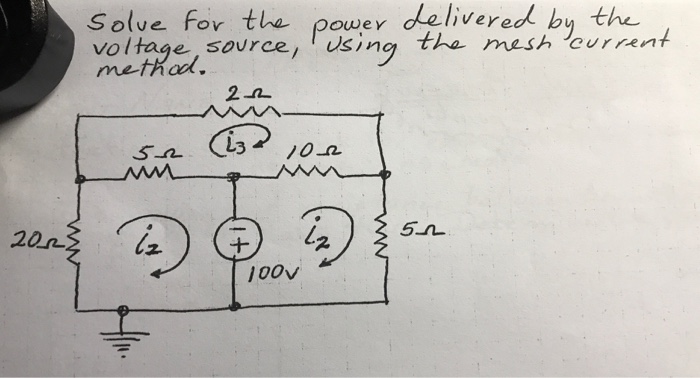 Solve for the power delivered by the
voltage source, using the mesh current
method.
2Ω
5Ω
i3
10Ω
20Ω
i2
i2
5Ω
100V